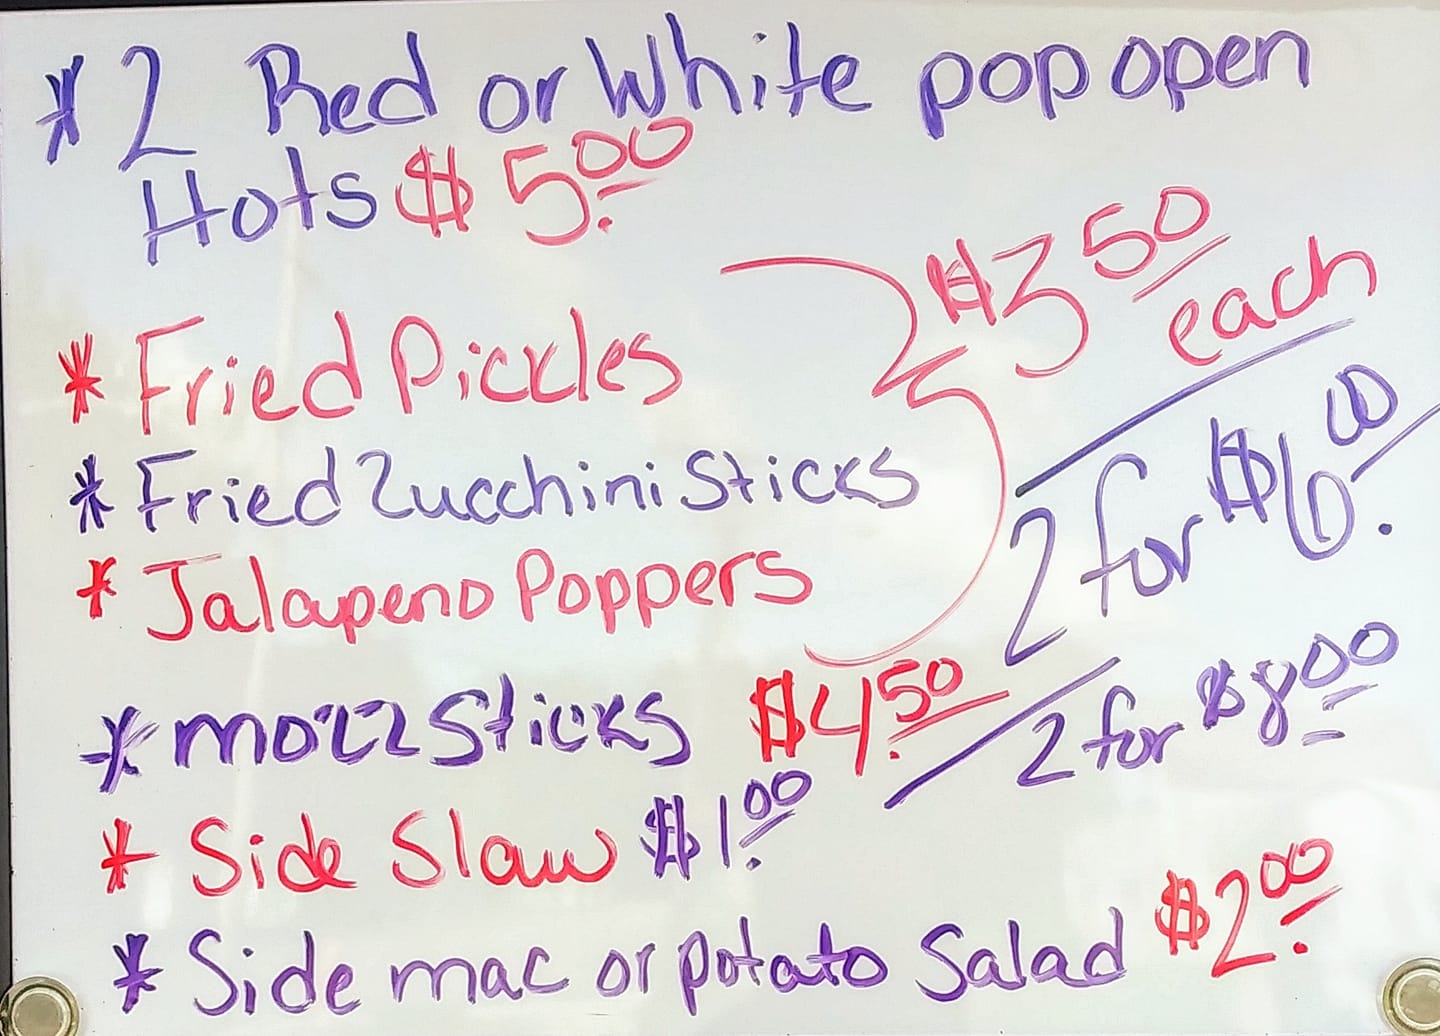 * 2 Red or White pop open
Hots $5.00
$3.50
each
* Fried Pickles
2 for $6.00
* Fried Zucchini Sticks
* Jalapeno Poppers
* mozz Sticks $4.50 2 for $8.00
* Side Slaw $1.00
* Side mac or potato Salad $2.00